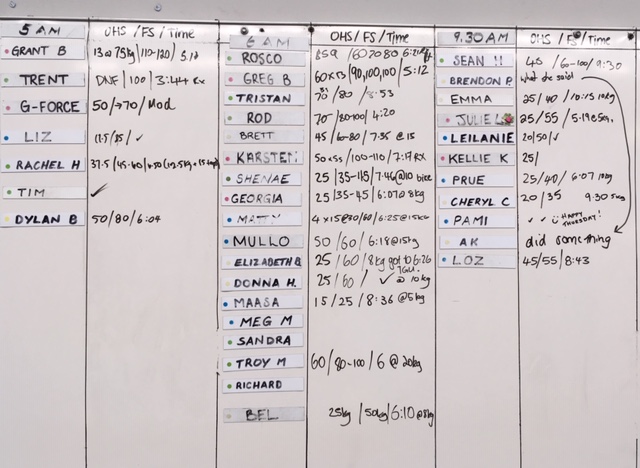 5 AM OHS/FS/Time
GRANT B 13@75kg/110-120/5.12
TRENT DNF/100/3:44 RX
G-FORCE 50/→70/Mod
LIZ 17.5/35/✓
RACHEL H 37.5/45-40/
TIM ✓
DYLAN B 50/80/6:04
6 AM OHS/FS/Time
ROSCO 60 70 80
GREG B 60x13/90,100,100/5:12
TRISTAN 70/80/3:53
ROD 70/80-100/4:20
BRETT 45/60-80/7:35 @15
KARSTEN 50x55/100-110/7:17 RX
SHENAE 25/35-115/7:46@10
GEORGIA 25/35-45/6:07@8kg
MATTY 4x15@30/60/6:25@15kg
MULLO 50/60/6:18@15kg
ELIZABETH B 25/60/8kg got to 6:26
DONNA H. 25/60/ ✓ TGU. @10kg
MAASA 15/25/8:36@5kg
MEG M
SANDRA
TROY M 60/80-100/6@20kg
RICHARD
BEL 25kg/50kg/6:10@8kg
9.30 AM OHS/FS/Time
SEAN H 45/60-100/9:30
BRENDON P. what she said
EMMA 25/40/10:15 10kg
JULIE L 25/55/5:19@5kg
LEILANIE 20/50/✓
KELLIE K 25/
PRUE 25/40/6:07 10kg
CHERYL C 20/35 9:30 5kg
PAMI ✓ ✓ HAPPY THURSDAY!
AK did something
LOZ 45/55/8:43